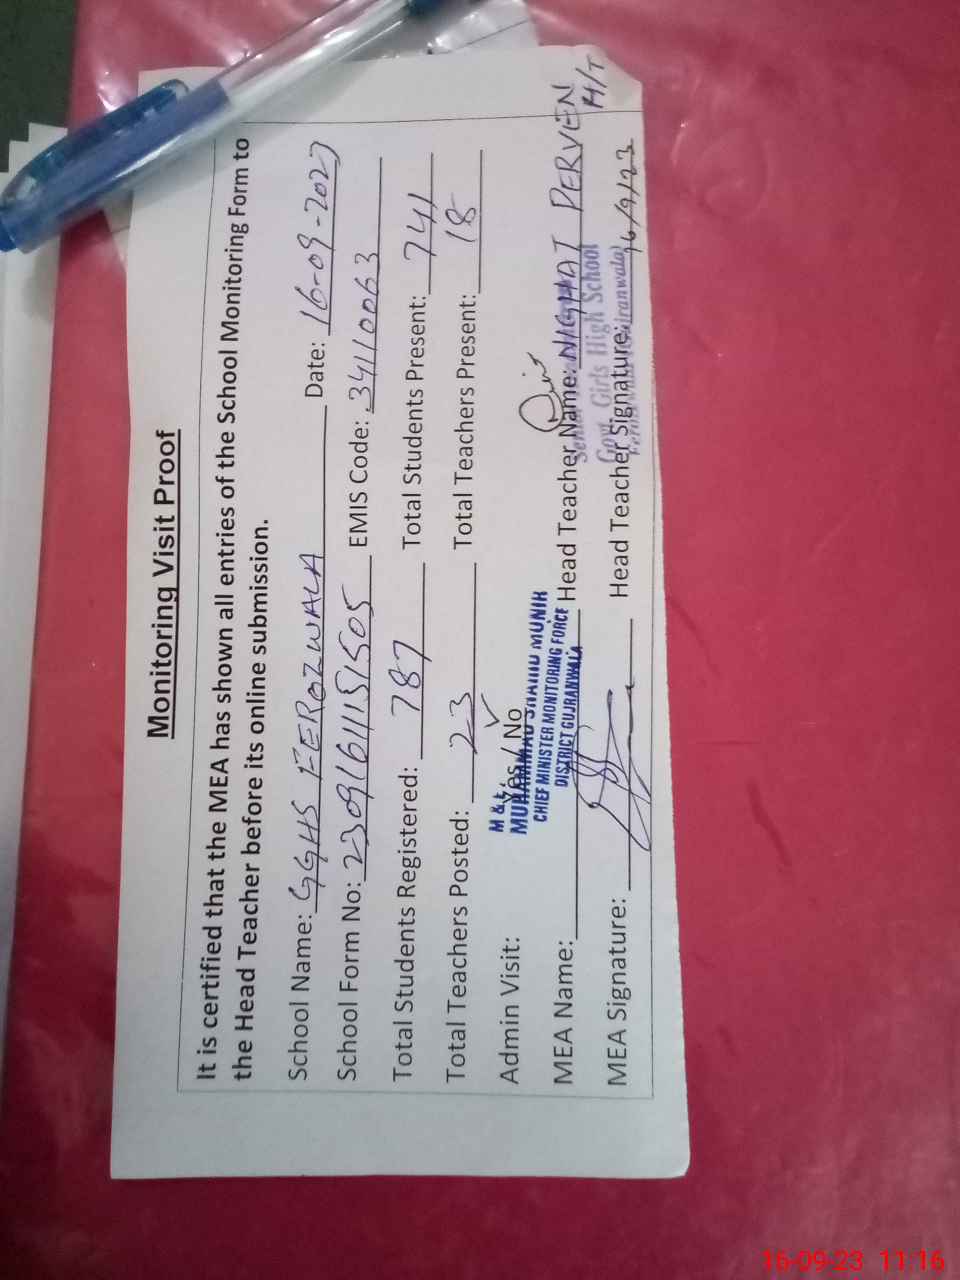 Monitoring Visit Proof
It is certified that the MEA has shown all entries of the School Monitoring Form to
the Head Teacher before its online submission.
School Name: GGHS FEROZWALA Date: 16-09-2023
School Form No: 23091611151505 EMIS Code: 34110063
Total Students Registered: 787 Total Students Present: 741
Total Teachers Posted: 23 Total Teachers Present: 18
Admin Visit: Yes / No ✓
M & E
MUHAMMAD MUNIR
CHIEF MINISTER MONITORING FORCE
DISTRICT GUJRANWALA
MEA Name: Head Teacher Name: NIGHAT PERVEN H/T
Govt. Girls High School
MEA Signature: Head Teacher Signature: 16/9/23
16-09-23 11:16